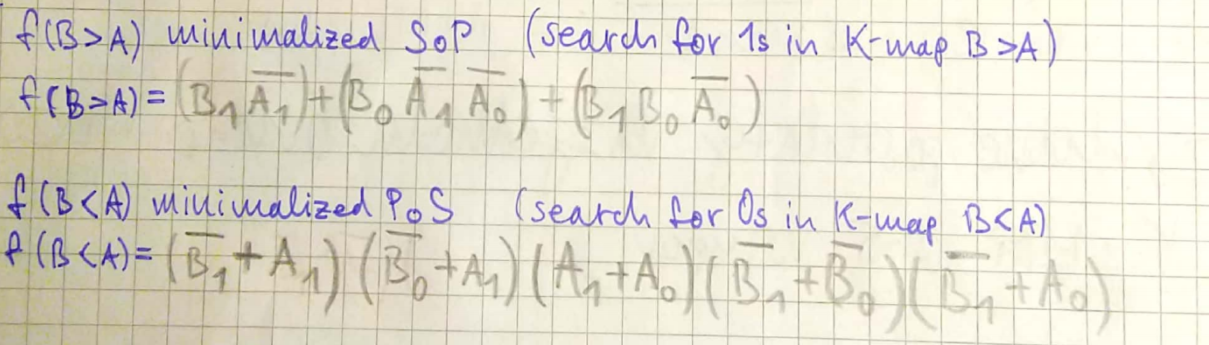 f(B>A) minimalized SoP (search for 1s in K-map B>A)
f(B>A) = (B₁A̅₁)+(B₀A̅₁A̅₀)+(B₁B₀A̅₀)
f(B<A) minimalized PoS (search for 0s in K-map B<A)
f(B<A) = (B̅₁+A₁)(B̅₀+A₁)(A₁+A₀)(B̅₁+B̅₀)(B̅₁+A₀)